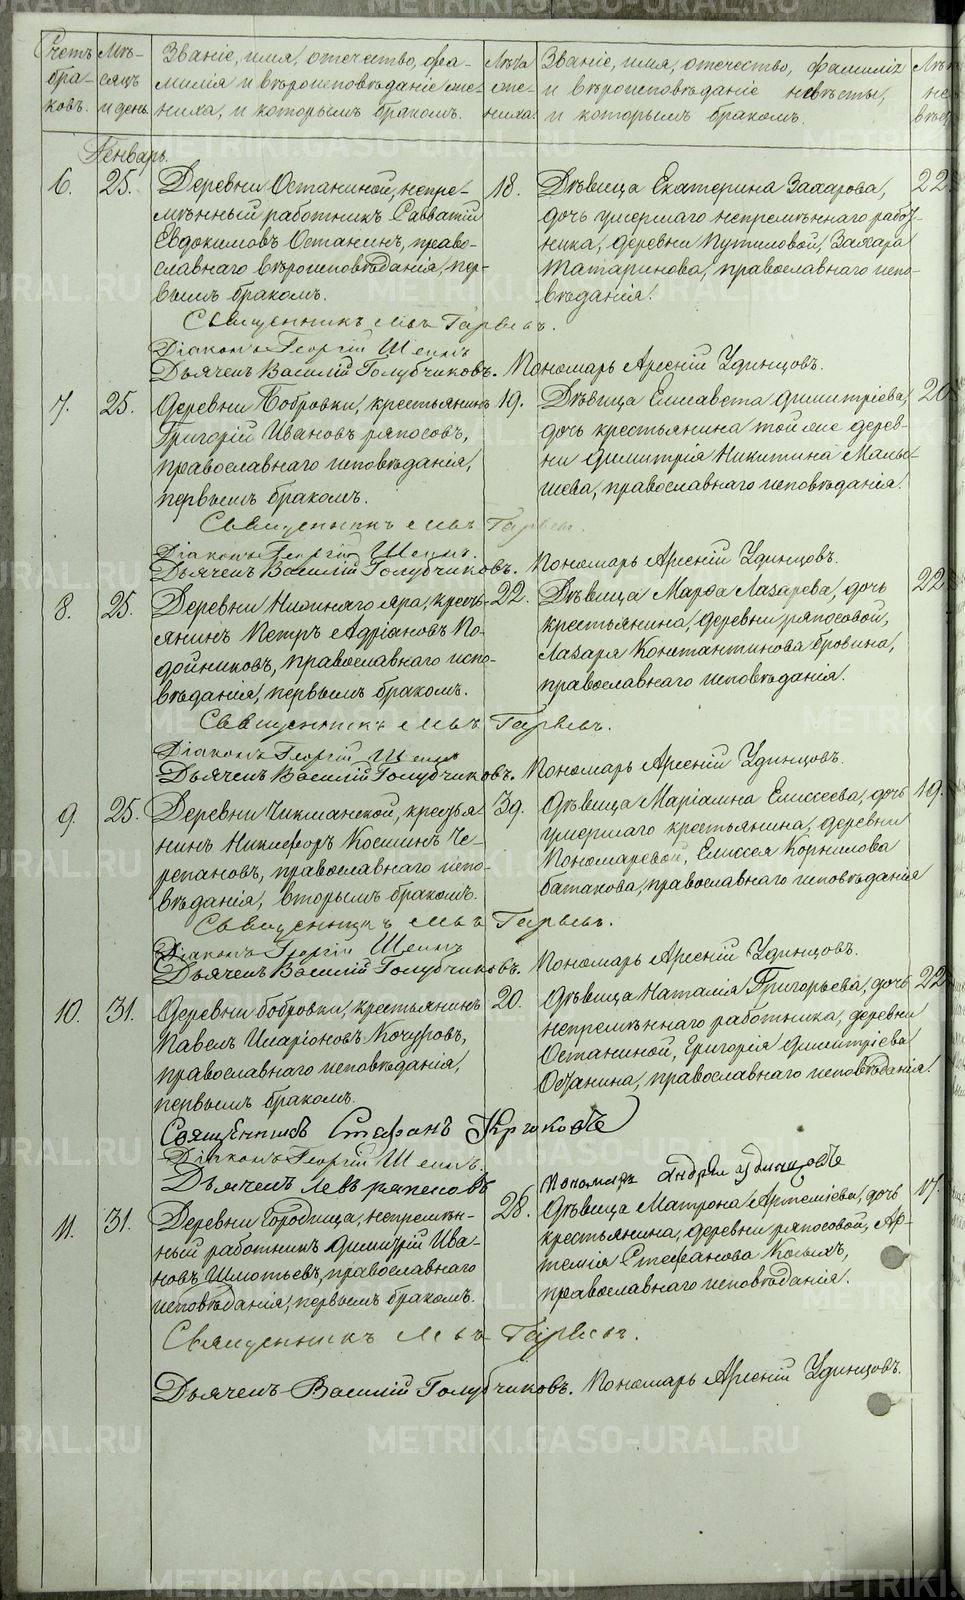 Счетъ бра- ковъ.
Мѣ- сяцъ и день.
Званіе, имя, отечество, фа-
милія и вѣроисповѣданіе же-
ниха, и которымъ бракомъ.
Лѣта же- ниха.
Званіе, имя, отечество, фамилія
и вѣроисповѣданіе невѣсты,
и которымъ бракомъ.
Генварь.
6. 25.
Деревни Останиной, непре-
мѣнный работникъ Савватій
Евдокимовъ Останинъ, право-
славнаго вѣроисповѣданія, пер-
вымъ бракомъ.
18.
Дѣвица Екатерина Захарова,
дочь умершаго непремѣннаго рабо-
ника, деревни Путиловой, Захара
Татаринова, православнаго испо-
вѣданія.
22
Священникъ
Діаконъ Георгій
Дьячекъ Василій Голубчиковъ. Пономарь Арсеній Удинцовъ.
7. 25.
Деревни Бобровки, крестьянинъ
Григорій Ивановъ ряпосовъ,
православнаго исповѣданія,
первымъ бракомъ.
19.
Дѣвица Елисавета Димитріева,
дочь крестьянина той же дерев-
ни Димитрія Никитина Малы-
шева, православнаго исповѣданія.
20
Священникъ
Діаконъ Георгій
Дьячекъ Василій Голубчиковъ. Пономарь Арсеній Удинцовъ.
8. 25.
Деревни Нижняго яра, кресть-
янинъ Петръ Адріановъ По-
дойниковъ, православнаго испо-
вѣданія, первымъ бракомъ.
22.
Дѣвица Марѳа Лазарева, дочь
крестьянина, деревни ряпосовой,
Лазаря Константинова Бровина,
православнаго исповѣданія.
22
Священникъ
Діаконъ Георгій
Дьячекъ Василій Голубчиковъ. Пономарь Арсеній Удинцовъ.
9. 25.
Деревни Чикманской, крестья-
нинъ Никифоръ Косминъ Че-
репановъ, православнаго испо-
вѣданія, вторымъ бракомъ.
39.
Дѣвица Маріамна Елиссеева, дочь
умершаго крестьянина, деревни
Пономаревой, Елиссея Корнилова
Батакова, православнаго исповѣданія
19.
Священникъ
Діаконъ Георгій
Дьячекъ Василій Голубчиковъ. Пономарь Арсеній Удинцовъ.
10. 31.
Деревни бобровки, крестьянинъ
Павелъ Иларіоновъ Кочуровъ,
православнаго исповѣданія,
первымъ бракомъ.
20.
Дѣвица Наталія Григорьева, дочь
непремѣннаго работника, деревни
Останиной, Григорія Димитріева
Останина, православнаго исповѣданія.
22
Священникъ Стефанъ
Діаконъ Георгій
Дьячекъ Левъ ряпосовъ
Пономарь Андрей удинцовъ
11. 31.
Деревни Городища, непремѣн-
ный работникъ Димитрій Ива-
новъ Шмотьевъ, православнаго
исповѣданія, первымъ бракомъ.
28.
Дѣвица Матрона Артеміева, дочь
крестьянина, деревни ряпосовой, Ар-
темія Стефанова Косыхъ,
православнаго исповѣданія.
17.
Священникъ
Дьячекъ Василій Голубчиковъ. Пономарь Арсеній Удинцовъ.
METRIKI.GASO-URAL.RU